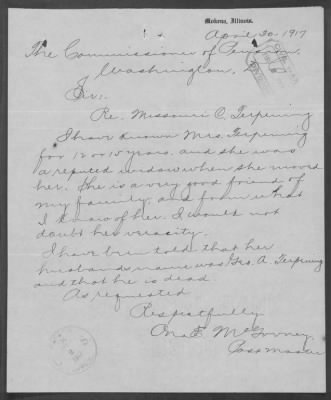 Mokena, Illinois.
April 30, 1917
The Commissioner of Pension
Washington,
Sir:
Re. Missouri C. Terpening
I have known Mrs. Terpening
for 12 or 15 years, and she was
a reputed widow when she moved
her. She is a very good friend of
my family, and from what
I know of her, I would not
doubt her veracity.
I have been told that her
husbands name was Geo. A. Terpening
and that he is dead.
As requested
Respectfully
McGovney
Postmaster